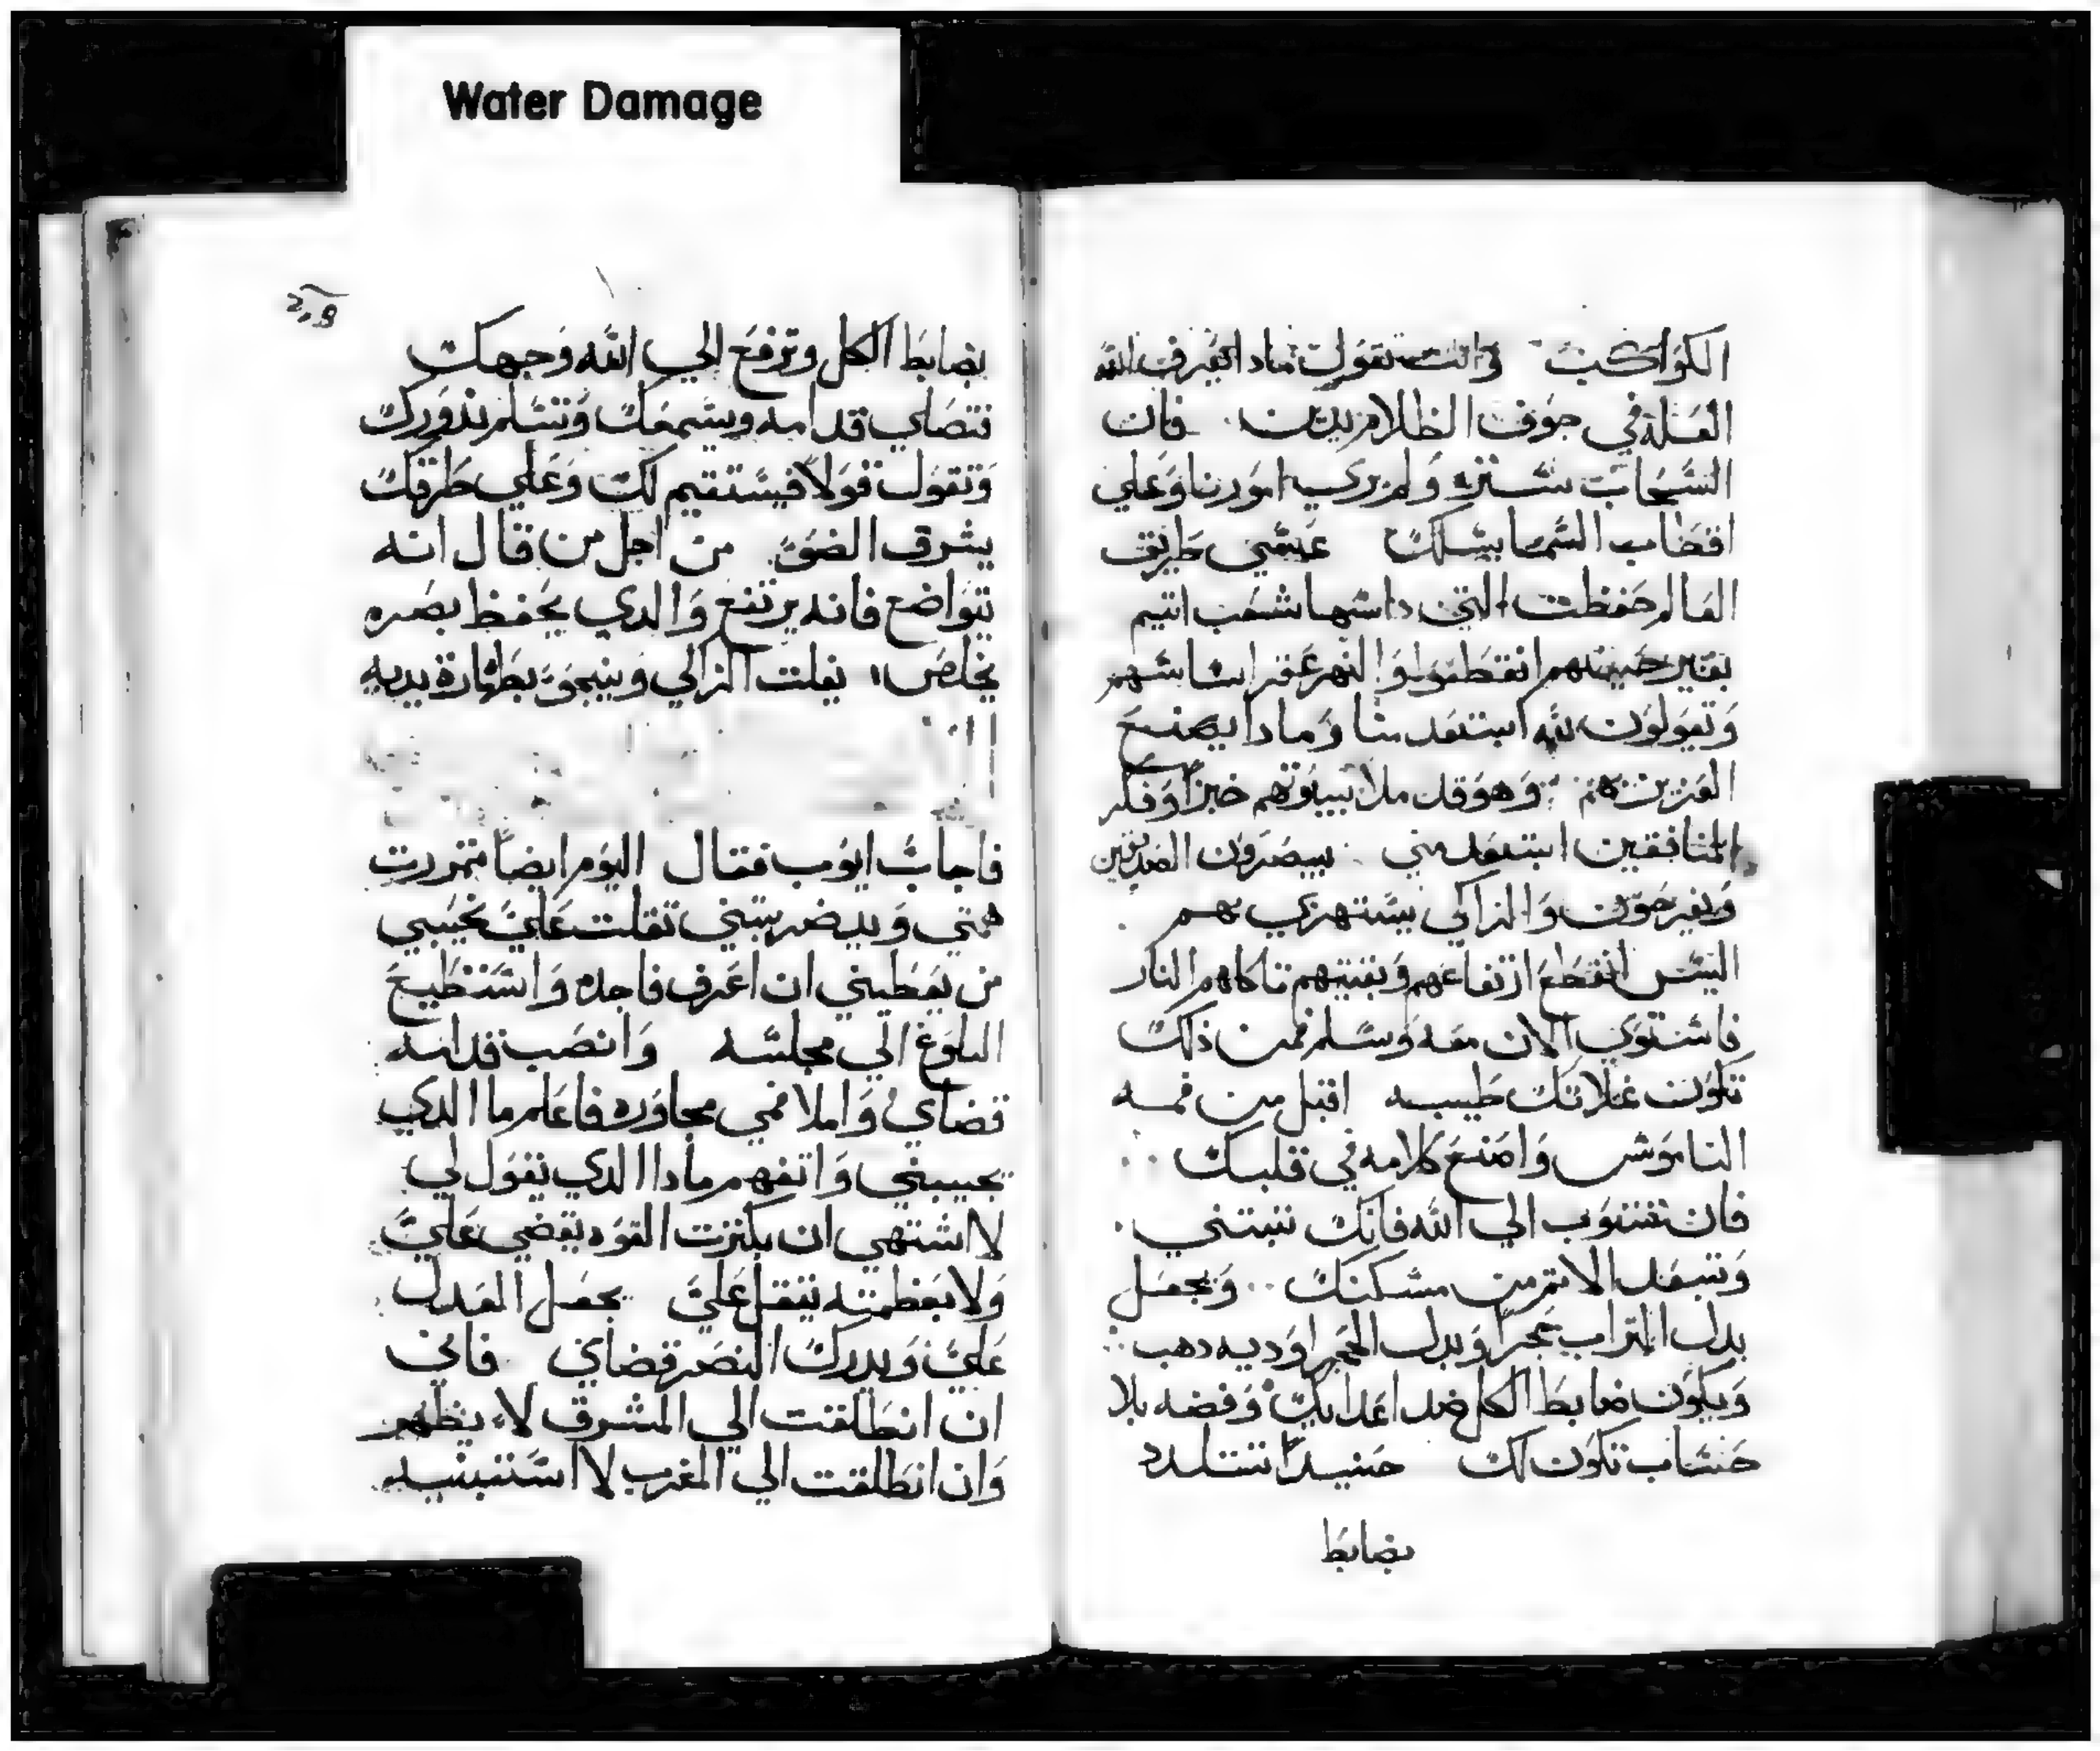 Water Damage
الكواكب وانت تقول ماذا اعترف الله
العله في جوف الظلام يدين فان
السحاب ستره ولم يري امورنا وعلي
اقطاب السما يسلك عسي طريق
العالم حفظت التي داسها شعب اثيم
بغير حينهم انقطعوا والنهر عند اساسهم
وتقولون لله ابتعد منا وماذا يصنع
العزيز بهم وهو قد ملا بيوتهم خيرا وفكر
المنافقين ابتعد مني يبصرون الصديقين
ويفرحون والزاكي يستهزي بهم
اليس انقطع ارتفاعهم وبقيتهم تاكلهم النار
فاستوي الان معه وسلم فمن ذلك
تكون غلاتك طيبه اقبل من فمه
الناموس واصنع كلامه في قلبك
فان تتوب الي الله فانك تبتني
وتبعد الاثم من مسكنك وتجعل
بدل التراب حجرا وبدل الحجر اوديه دهب
ويكون ضابط الكل ضد اعدايك وفضه بلا
حساب تكون لك حينيدا تتلدد
بضابط
بضابط الكل وترفع الي الله وجهك
تتصلي قدامه ويسمعك وتسلم ندورك
وتقول قولا فيستقيم لك وعلي طرقك
يشرق الضو من اجل من قال انه
تتواضع فانه يرتفع والدي يحفظ بصره
يخلص يفلت الزاكي وينجو بطهارة يديه
فاجاب ايوب فقال اليوم ايضا تمررت
همتي ويد ضربتني ثقلت علي نحيبي
من يعطيني ان اعرف فاجده واستطيع
البلوغ الي مجلسه وانصب قدامه
قضاي واملا فمي محاوره فاعلم ما الدي
يجيبني واتفهم مادا الدي يقول لي
لا اشتهي ان بكثرت القوه يقضي علي
ولا بعظمته يثقل علي يجعل العدل
علي ويدرك النصر قضاي فاني
ان انطلقت الي المشرق لا يظهر
وان انطلقت الي المغرب لا استبينه